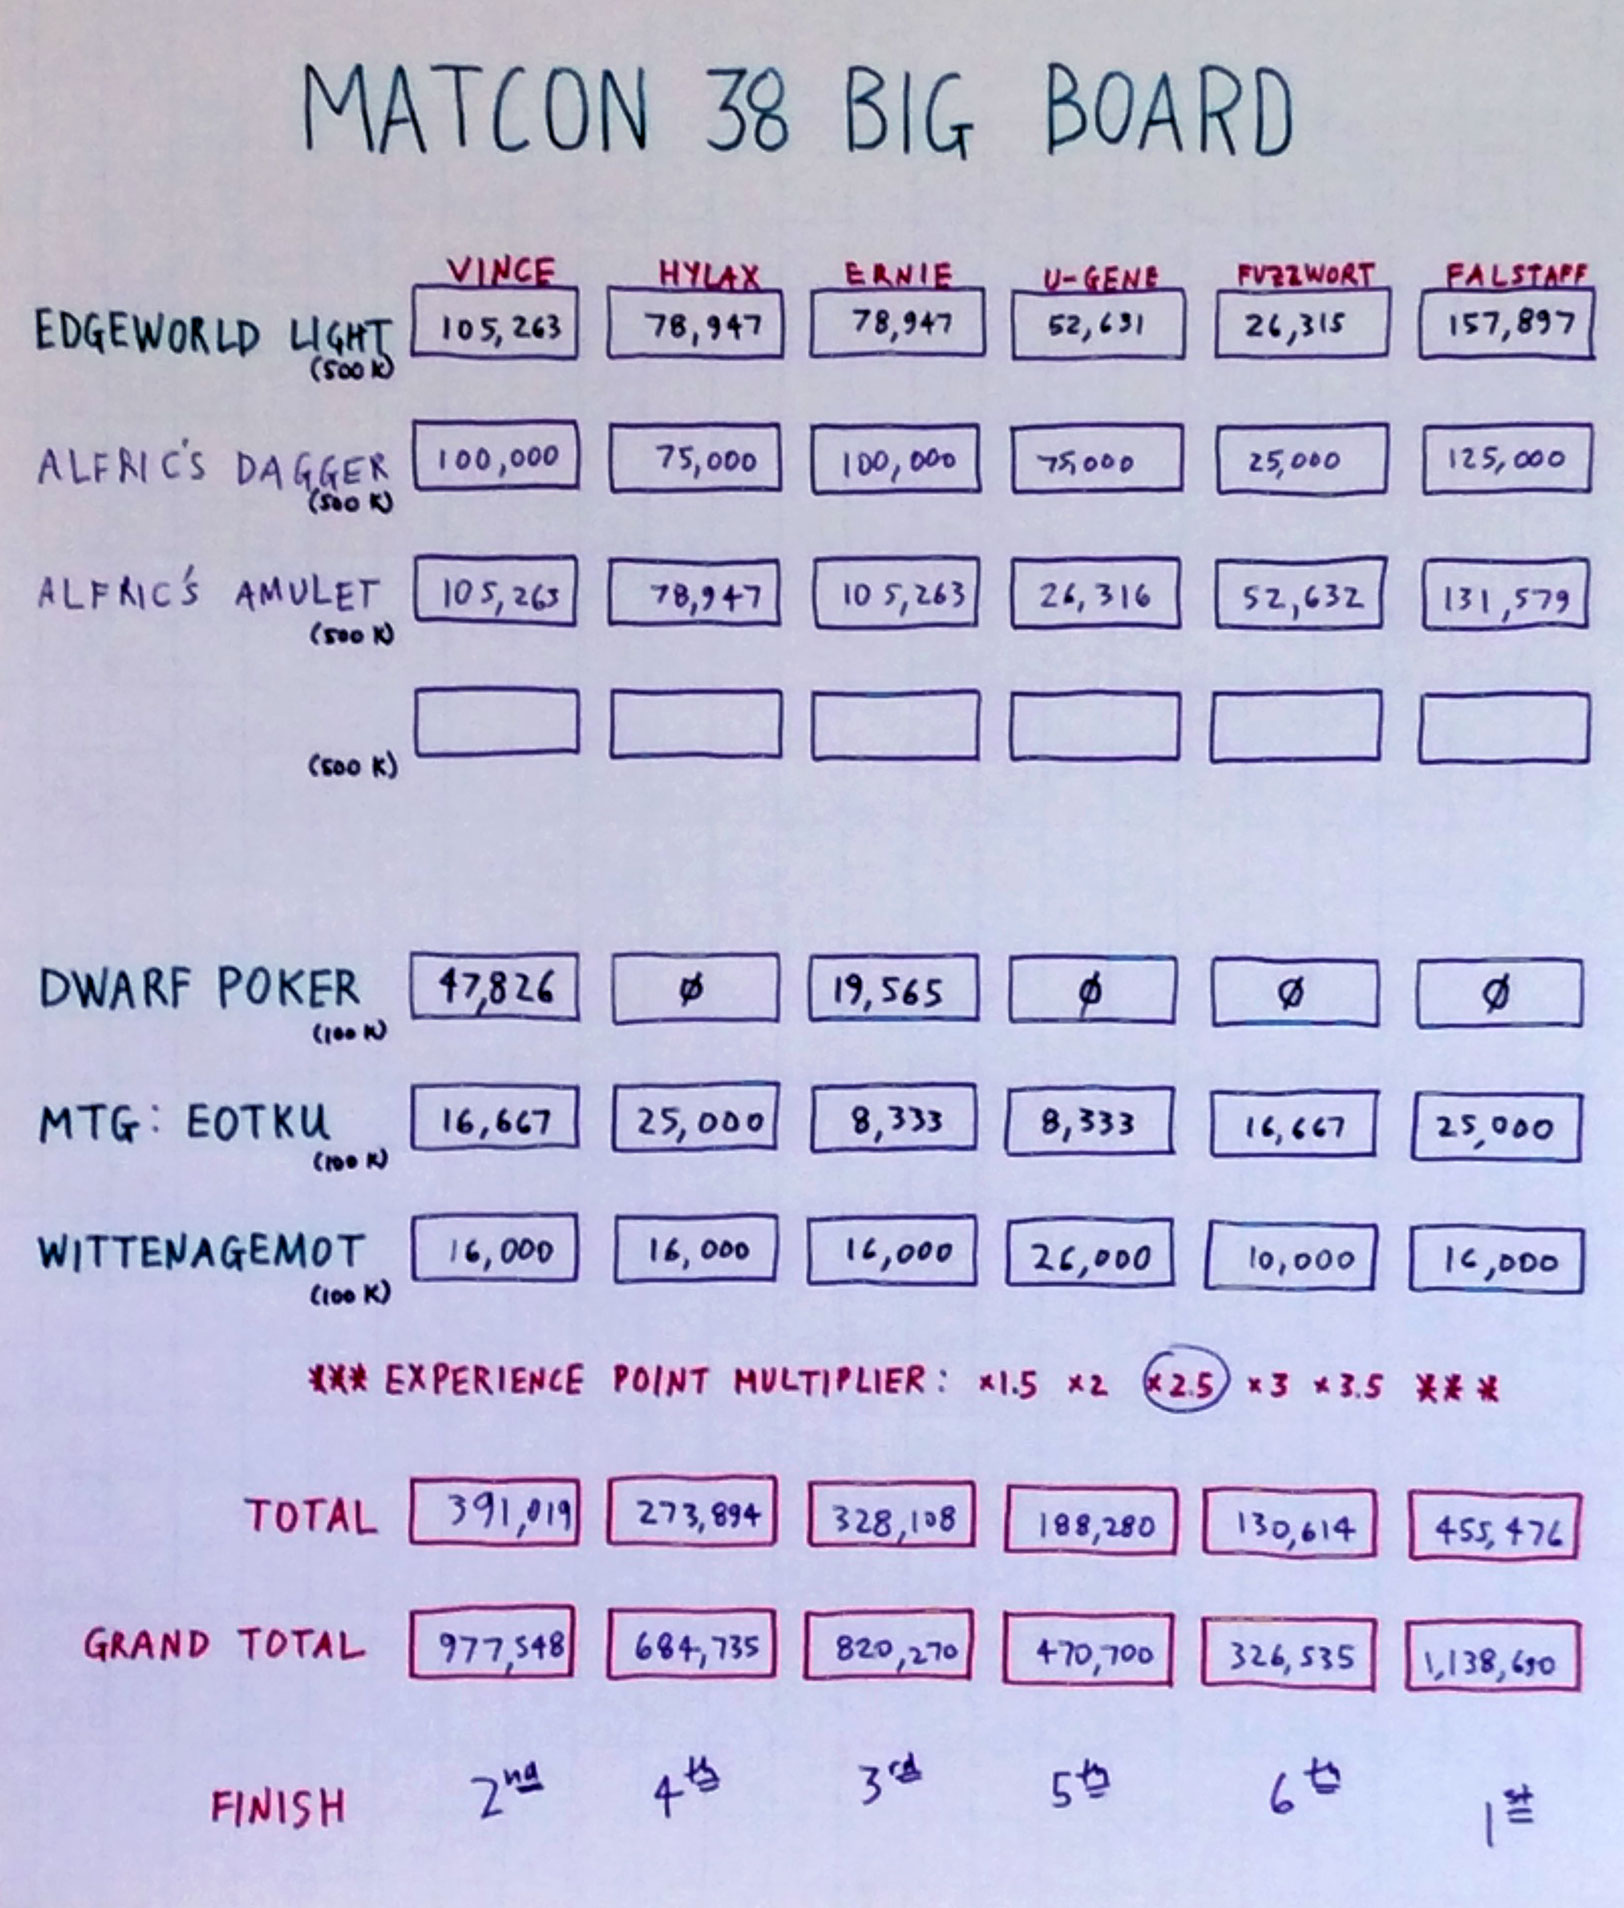 MATCON 38 BIG BOARD
VINCE HYLAX ERNIE U-GENE FUZZWORT FALSTAFF
EDGEWORLD LIGHT 105,263 78,947 78,947 52,631 26,315 157,897
(500 K)
ALFRIC'S DAGGER 100,000 75,000 100,000 75,000 25,000 125,000
(500 K)
ALFRIC'S AMULET 105,263 78,947 105,263 26,316 52,632 131,579
(500 K)
(500 K)
DWARF POKER 47,826 Ø 19,565 Ø Ø Ø
(100 K)
MTG: EOTKU 16,667 25,000 8,333 8,333 16,667 25,000
(100 K)
WITTENAGEMOT 16,000 16,000 16,000 26,000 10,000 16,000
(100 K)
*** EXPERIENCE POINT MULTIPLIER: x1.5 x2 x2.5 x3 x3.5 ***
TOTAL 391,019 273,894 328,108 188,280 130,614 455,476
GRAND TOTAL 977,548 684,735 820,270 470,700 326,535 1,138,690
FINISH 2nd 4th 3rd 5th 6th 1st